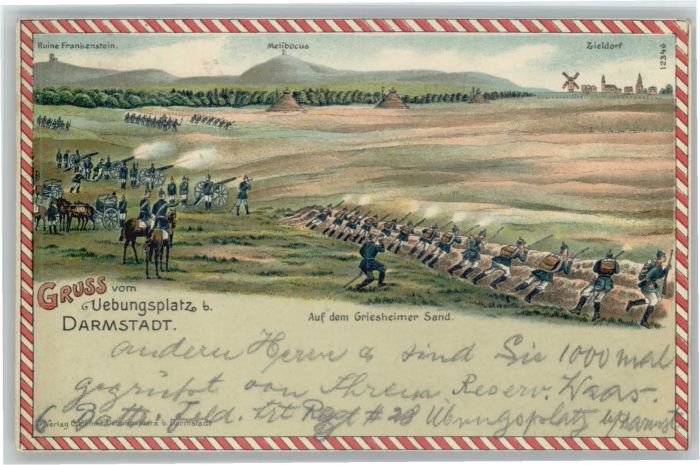 Ruine Frankenstein.
Melibocus
Zieldorf
12346
Gruss vom
Uebungsplatz b.
Darmstadt.
Auf dem Griesheimer Sand.
andern Herrn & sind Sie 1000 mal
gegrüßt von Ihrem Reserv. Haas.
6 Battr. Feld. Art Regt # 23 Übungsplatz
Verlag Uebungsplatz b. Darmstadt